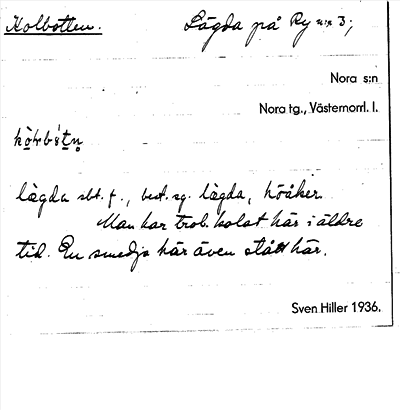 Kolbotten. Lägda på Ry n:r 3;
Nora s:n
Nora tg., Västernorrl. l.
lägda sbt. f., best. sg. lägda, höåker.
Man har trol. kolat här i äldre
tid. En smedja här även stått här.
Sven Hiller 1936.